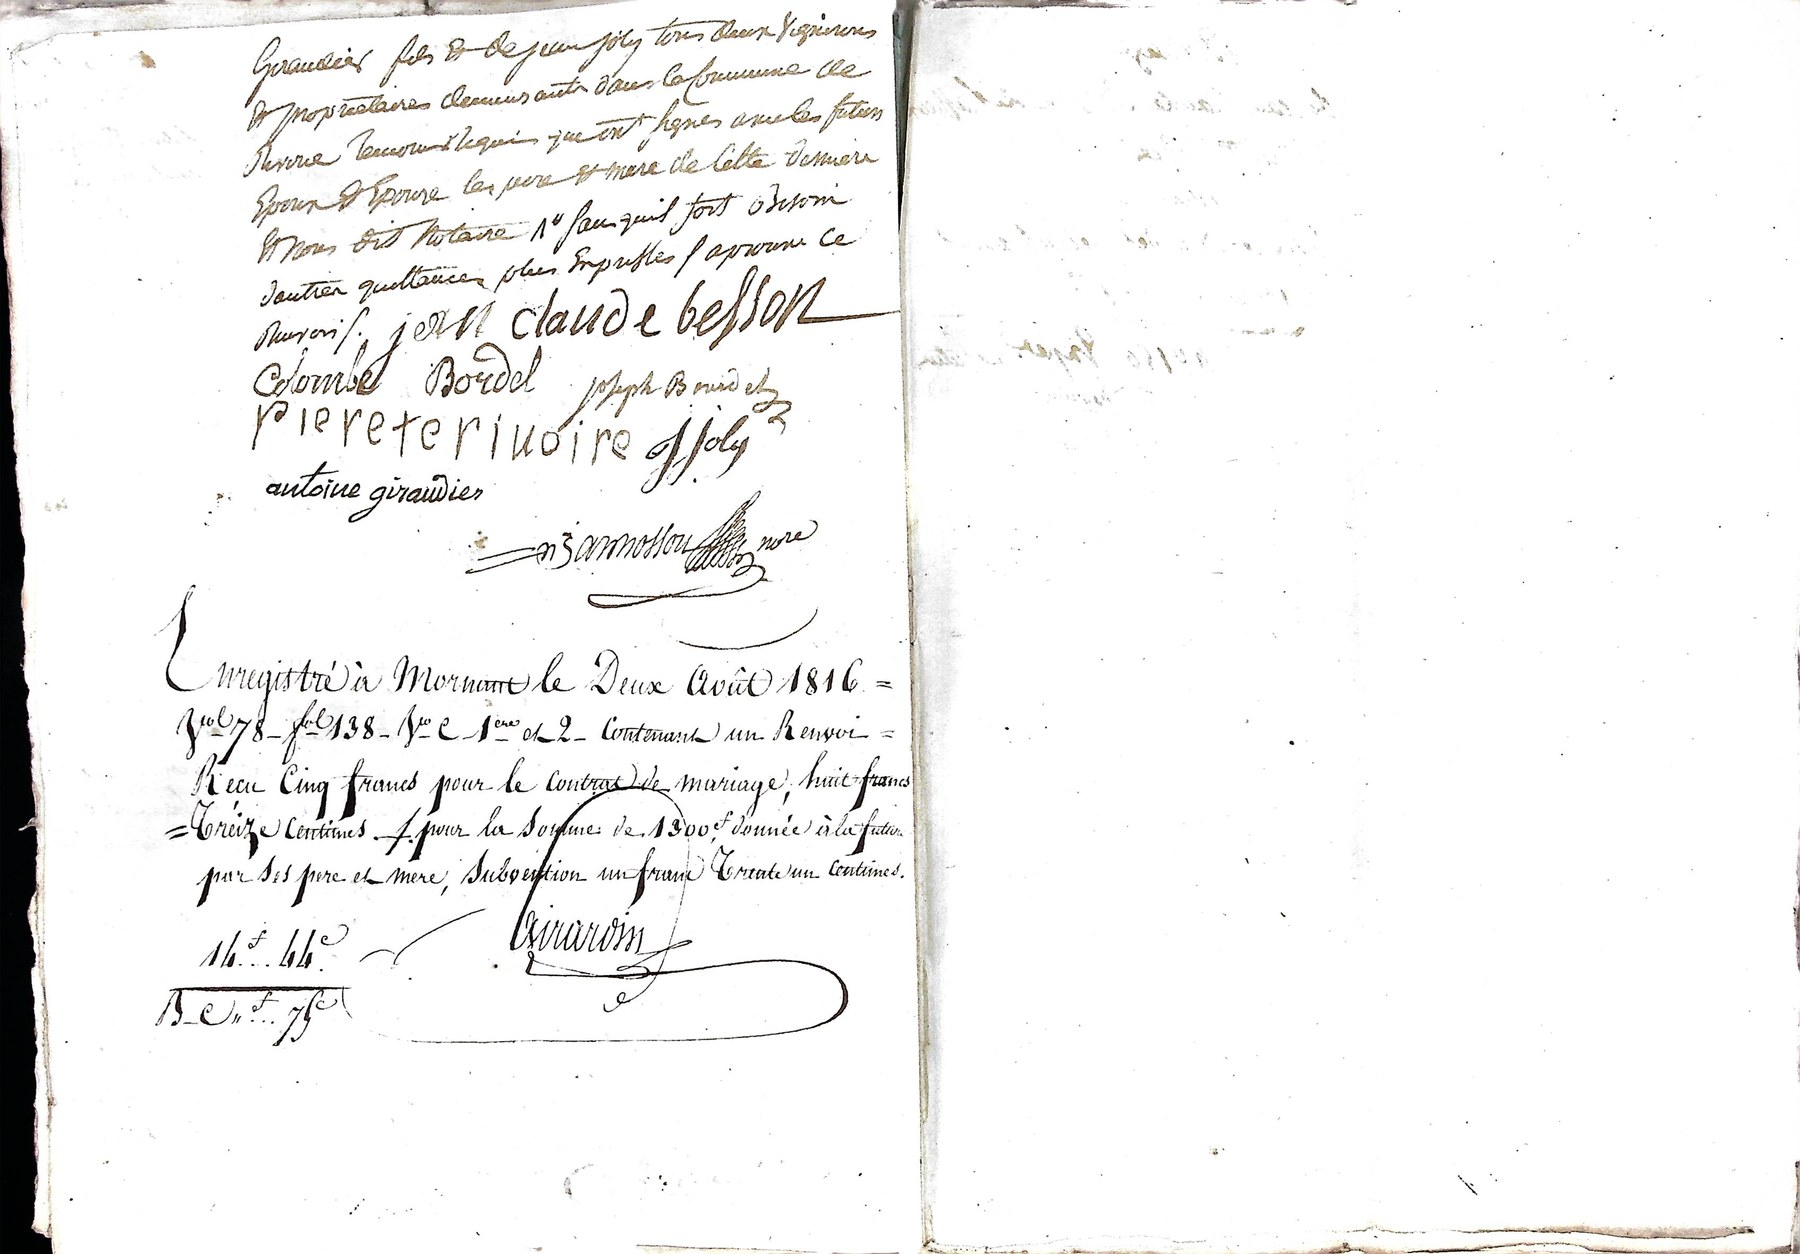 Giraudier fils et de jean joly tous deux Vignerons
et propriétaires demeurants dans la Commune de
temoins requis qui ont signes avec les futurs
Epoux et Epouse les pere et mere de cette derniere
et nous dit Notaire 1° sans quil soit Besoin
dautres quittances plus Expresses / aprouvé ce
Renvoi /. jean claude besson
Colombe Bordel joseph Bourdel
Piereterivoire jjoly
antoine giraudier
nore
Enregistré à Mornant le Deux Août 1816 =
Vol 78 - fol 138 - Vo C 1ere et 2 - Contenant un Renvoi =
Recu Cinq francs pour le Contrat de mariage, huit francs
= Treize Centimes / pour la Somme de 1300f donnée à la future
par Ses pere et mere, Subvention un franc Trente un Centimes.
14f... 44c
Girardin
B - C " f... 75c